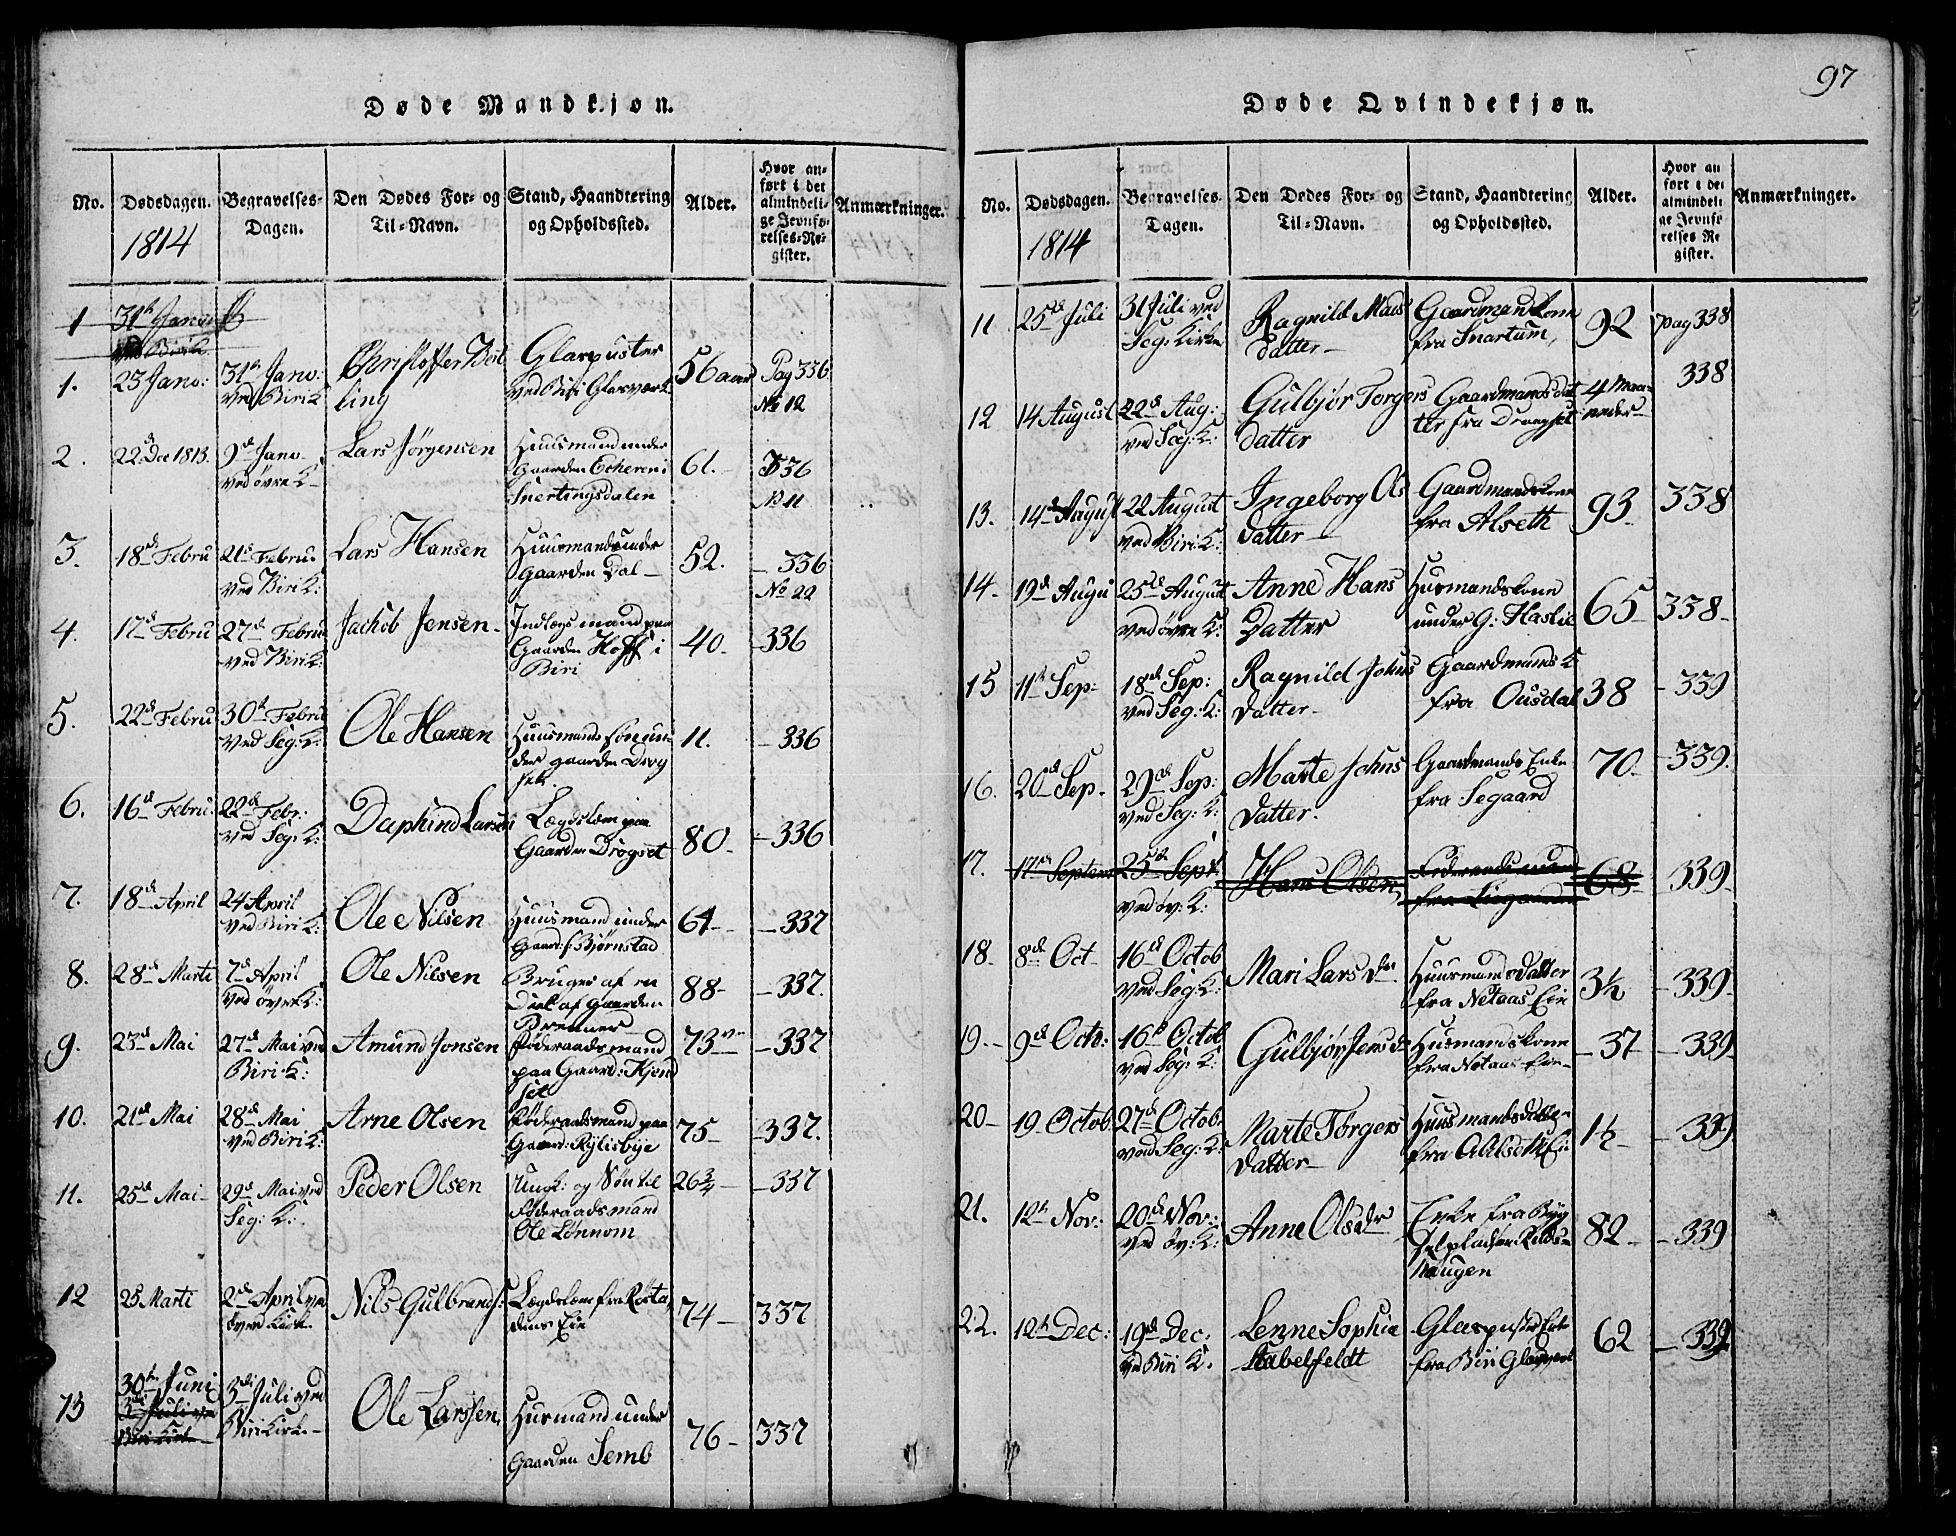 97
Døde Mandkjøn.
No.
Dødsdagen.
1814
Begravelses-
Dagen.
Den Dødes For- og
Til-Navn.
Stand, Haandtering
og Opholdssted.
Alder.
Hvor an-
ført i det
almindeli-
ge Jevnfø-
relses-Re-
gister.
Anmærkninger.
1
1.
23 Janv:
31te Janv:
ved Biri K
Christoffer
ling
Glaspuster
ved Biri Glasværk
56 aar
Pag 336
No 12
2.
22de Dec 1813.
9de Janv.
ved øvre K
Lars Jørgensen
Huusmand under
Gaarden Echeren i
Snertingsdalen
61.
336
N 11
3.
18de Febru
21de Febru.
ved Biri K:
Lars Hansen
Huusmand under
Gaarden Dal
52.
336
No 22
4.
17de Febru
27de Febru
ved Biri K:
Jachob Jensen
Indlægs mand paa
Gaarden Hoff i
Biri
40
336
5.
22de Febru
30te Febru
ved Seg: K:
Ole Hansen
Huusmands søn un-
der gaarden Drog
set.
11.
336
6.
16de Febru:
22de Febr:
ved Seg: K:
Daphind Larsen
Lægdslem paa
Gaarden Drogset
80
336
7.
18de April
24 April
ved Biri K:
Ole Nilsen
Huusmand under
Gaard: Bjørnstad
64
337
8.
28de Marti
7de April
ved øvre K:
Ole Nilsen
Bruger af en
Deel af Gaarden
Brenner
88
337.
9.
23de Mai
27de Mai ved
Biri K:
Amund Jonsen
Føderaadsmand
paa Gaard: Kjend
set
73
337
10.
21de Mai
28de Mai
ved Biri K:
Arne Olsen
Føderaadsmand paa
Gaard: Rylisbye
75
337.
11.
25de Mai
29de Mai ved
Seg: K:
Peder Olsen
Ungk: og Søn til
Føderaadsmand
Ole Lønnom
26 3/4
337
12
25 Marti
2de April ved
øvre Kirke
Nils Gulbrands:
Lægdslem fra Røsta
dens Eie
74
337
13
30te Juni
3de Juli ved
Biri Kirke
3de Juli ved
Biri Kirke
Ole Larssen,
Husmand under
Gaarden Semb
76
337
Døde Qvindekjøn.
No.
Dødsdagen.
1814
Begravelses-
Dagen.
Den Dødes For- og
Til-Navn.
Stand, Haandtering
og Opholdssted.
Alder.
Hvor an
ført i det
almindeli
ge Jevnfø
relses Re
gister.
Anmærkninger.
11
25de Juli
31 Juli ved
Seg: Kirke
Ragnild Mads
datter
Gaardmandskone
fra Snartum,
92
pag 338
12
14 August
22de Aug:
ved Seg: K:
Gulbjør Torgers
datter
Gaardmandsdat
ter fra Drangset
4 Maa
neder
338
13.
14de August
22 August
ved Biri K:
Ingeborg Os
datter
Gaardmandskone
fra Alseth
93
338
14
19de Augu
25de August
ved øvre K:
Anne Hans
Datter
Husmandskone
under G: Haslie
65
338
15
11te Sep:
18de Sep:
ved Seg: K:
Ragnild Johns
Datter
Gaardmands K
fra Ousdal
38
339
16.
20de Sep.
29de Sep:
ved Seg: K:
Marte Johns
Datter.
Gaardmands Enke
fra Segaard
70
339.
17.
17de Septem
25de Sept.
ved øv: K:
Hans Olsen
Føderaadsmand
68
339
18
8de Oct
16de Octob
ved Seg K:
Mari Lars dr
Huusmands Datter
fra Netaas Eie
3½
339
19.
9de Octb:
16de Octob
ved Seg: K:
Gulbjør Jens dr
Husmandskone
fra Netaas Eie
37
339
20
19 Octob
27de Octob.
ved Seg: K:
Marte Torgers
Datter
Huusmandsdatter
fra Alseth Eie
1½
339
21.
12te Nov:
20de Nov:
ved øv: K:
Anne Olsdr
Enke fra Byg
selpladsen
Haugen
82
339
22.
12te Dec:
19de Dec:
ved Biri K.
Lenne Sophia
Stabelfeldt
Glaspuster Enke
fra Biri Glasværk
62
339